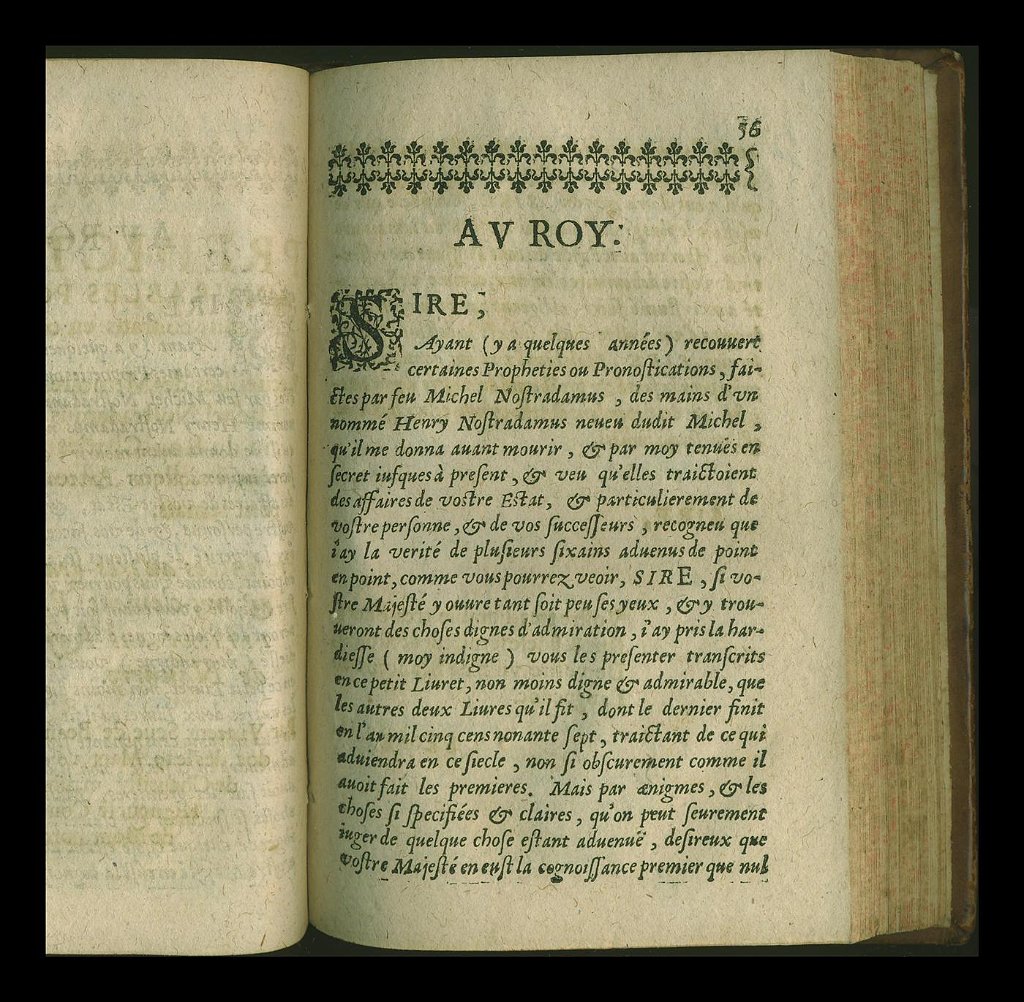 56
AV ROY:
SIRE,
Ayant (y a quelques années) recouuert
certaines Propheties ou Pronoſtications, fai-
ctes par feu Michel Noſtradamus, des mains d'vn
nommé Henry Noſtradamus neueu dudit Michel,
qu'il me donna auant mourir, & par moy tenuës en
ſecret iuſques à preſent, & veu qu'elles traictoient
des affaires de voſtre Eſtat, & particulierement de
voſtre perſonne, & de vos ſucceſſeurs, recogneu que
i'ay la verité de pluſieurs ſixains aduenus de point
en point, comme vous pourrez veoir, SIRE, ſi vo-
ſtre Majeſté y ouure tant ſoit peu ſes yeux, & y trou-
ueront des choſes dignes d'admiration, i'ay pris la har-
dieſſe (moy indigne) vous les preſenter tranſcrits
en ce petit Liuret, non moins digne & admirable, que
les autres deux Liures qu'il fit, dont le dernier finit
en l'an mil cinq cens nonante ſept, traictant de ce qui
aduiendra en ce ſiecle, non ſi obſcurement comme il
auoit fait les premieres. Mais par ænigmes, & les
choſes ſi ſpecifiées & claires, qu'on peut ſeurement
iuger de quelque choſe eſtant aduenuë, deſireux que
voſtre Majeſté en euſt la cognoiſſance premier que nul